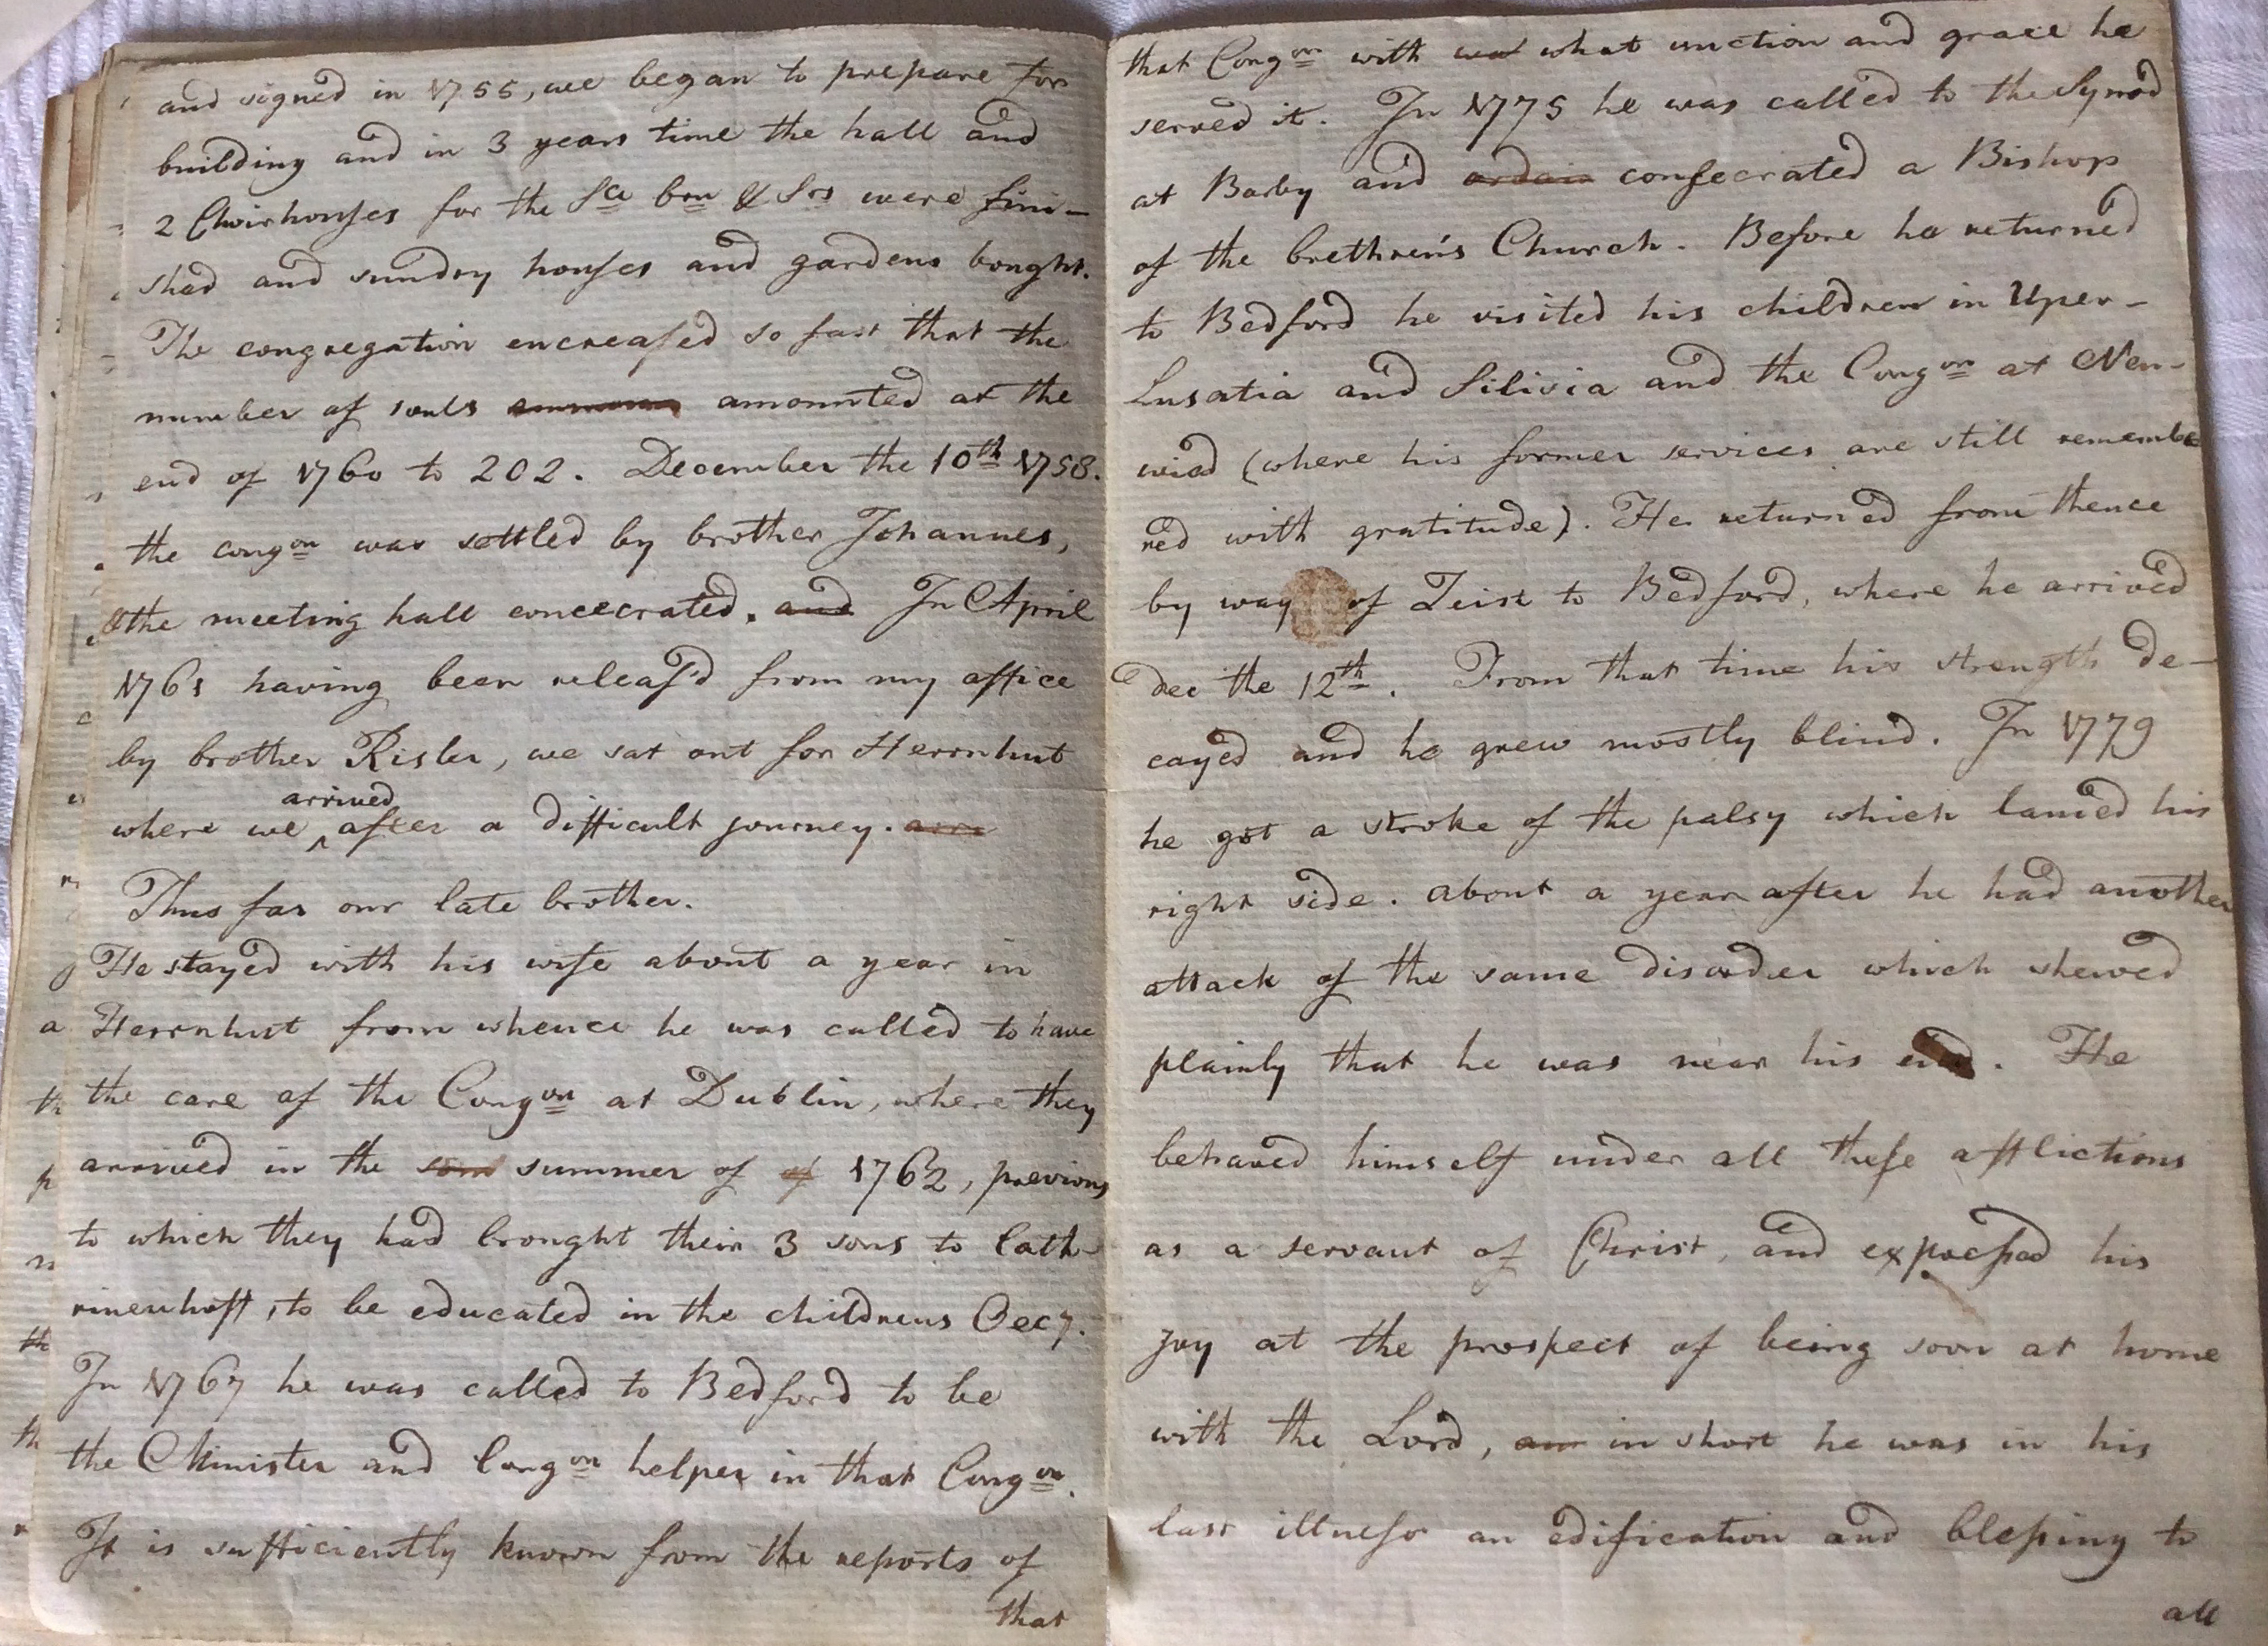 and signed in 1755, we began to prepare for
building and in 3 years time the hall and
2 Choirhouses for the Sce brn & Srs were fini-
shed and sundry houses and gardens bought.
The congregation encreased so fast that the
number of souls amounted at the
end of 1760 to 202. December the 10th 1758.
the congon was settled by brother Johannes,
& the meeting hall concecrated. and In April
1761 having been releas'd from my office
by brother Risler, we sat out for Herrnhut
where we arrived after a difficult journey.
Thus far our late brother.
He stayed with his wife about a year in
Herrnhut from whence he was called to have
the care of the Congon at Dublin, where they
arrived in the som summer of of 1762, previous
to which they had brought their 3 sons to Cath-
rinenhoff, to be educated in the childrens Oecy.
In 1767 he was called to Bedford to be
the Minister and Congon helper in that Congon.
It is sufficiently known from the reports of
that
that Congon with wat what unction and grace he
served it. In 1775 he was called to the Synod
at Barby and ordain consecrated a Bishop
of the brethren's Church. Before he returned
to Bedford he visited his children in Uper-
Lusatia and Silisia and the Congon at Neu-
wied (where his former services are still remembe
red with gratitude). He returned from thence
by way of Zeist to Bedford, where he arrived
dec the 12th. From that time his strength de-
cayed and he grew mostly blind. In 1779
he got a stroke of the palsy which lamed his
right side. about a year after he had another
attack of the same disorder which shewed
plainly that he was near his end. He
behaved himself under all these afflictions
as a servant of Christ, and expressed his
joy at the prospect of being soon at home
with the Lord, an in short he was in his
last illness an edification and blessing to
all